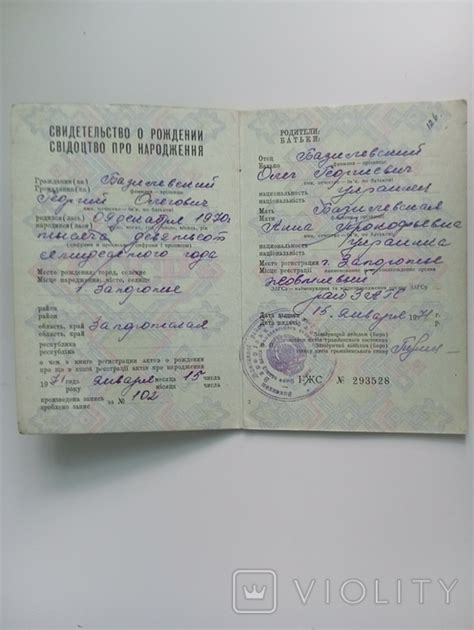 СВИДЕТЕЛЬСТВО О РОЖДЕНИИ
СВІДОЦТВО ПРО НАРОДЖЕННЯ
Гражданин(ка) Базилевский
Громадянин(ка)
Георгий Олегович
родился(лась) 09 декабря 1970
народився(лась)
тысяча девятьсот
семидесятого года
Место рождения: город, селение
Місце народження: місто, селище
г. Запорожье
района
району
область, край Запорожская
область, край
республика
республіка
о чем в книге регистрации актов о рождении
про що в книзі реєстрації актів про народження
1971 года января месяца 15 числа
року місяця числа
произведена запись за № 102
зроблено запис
126
РОДИТЕЛИ:
БАТЬКИ:
Отец Базилевский
Батько
Олег Георгиевич
национальность украинец
національність
Мать Базилевская
Мати
Анна Прокофьевна
национальность украинка
національність
Место регистрации г. Запорожье
Місце реєстрації
Жовтневый
райЗАГС
Дата выдачи 15 января 1971 г.
Дата видачі
І-ЖС № 293528
VIOLITY